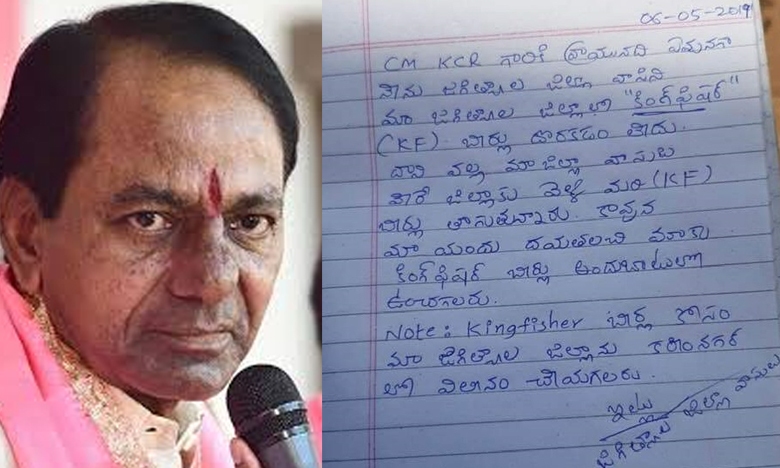 06-05-2019
CM KCR గారికి వ్రాయునది ఏమనగా
నేను జగిత్యాల జిల్లా వాసిని
మా జగిత్యాల జిల్లాలో "కింగ్ ఫిషర్"
(KF) బీర్లు దొరకడం లేదు.
దాని వల్ల మా జిల్లా వాసులు
వేరే జిల్లాకు వెళ్ళి మరి (KF)
బీర్లు తాగుతున్నారు. కావున
మా యందు దయతలచి మాకు
కింగ్ ఫిషర్ బీర్లు అందుబాటులో
ఉంచగలరు.
Note: Kingfisher బీర్ల కోసం
మా జగిత్యాల జిల్లాను కరీంనగర్
లో విలీనం చేయగలరు.
ఇట్లు
జగిత్యాల జిల్లా వాసులు